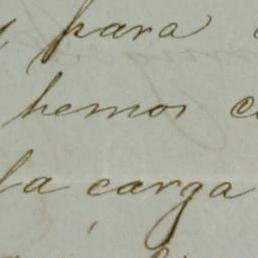 para
hemos
la carga